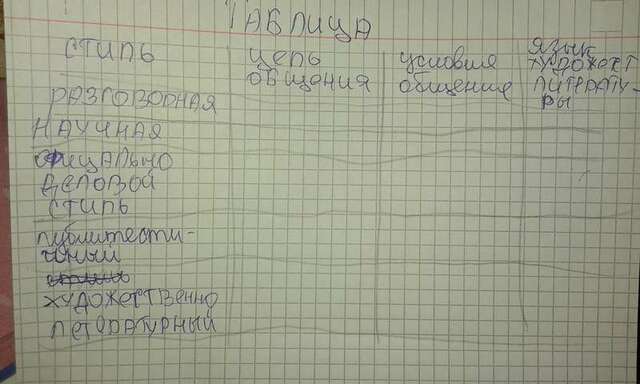 ТАБЛИЦА
СТИЛЬ
ЦЕЛЬ
ОБЩЕНИЯ
условия
общение
ЯЗЫК
ХУДОЖЕСТ
ЛИТЕРАТУ-
РЫ
РАЗГОВОРНАЯ
НАУЧНАЯ
ОФИЦАЛЬНО
ДЕЛОВОЙ
СТИЛЬ
публитести-
чный
ХУДОЖЕСТВЕННО
ЛЕТОРАТУРНЫЙ